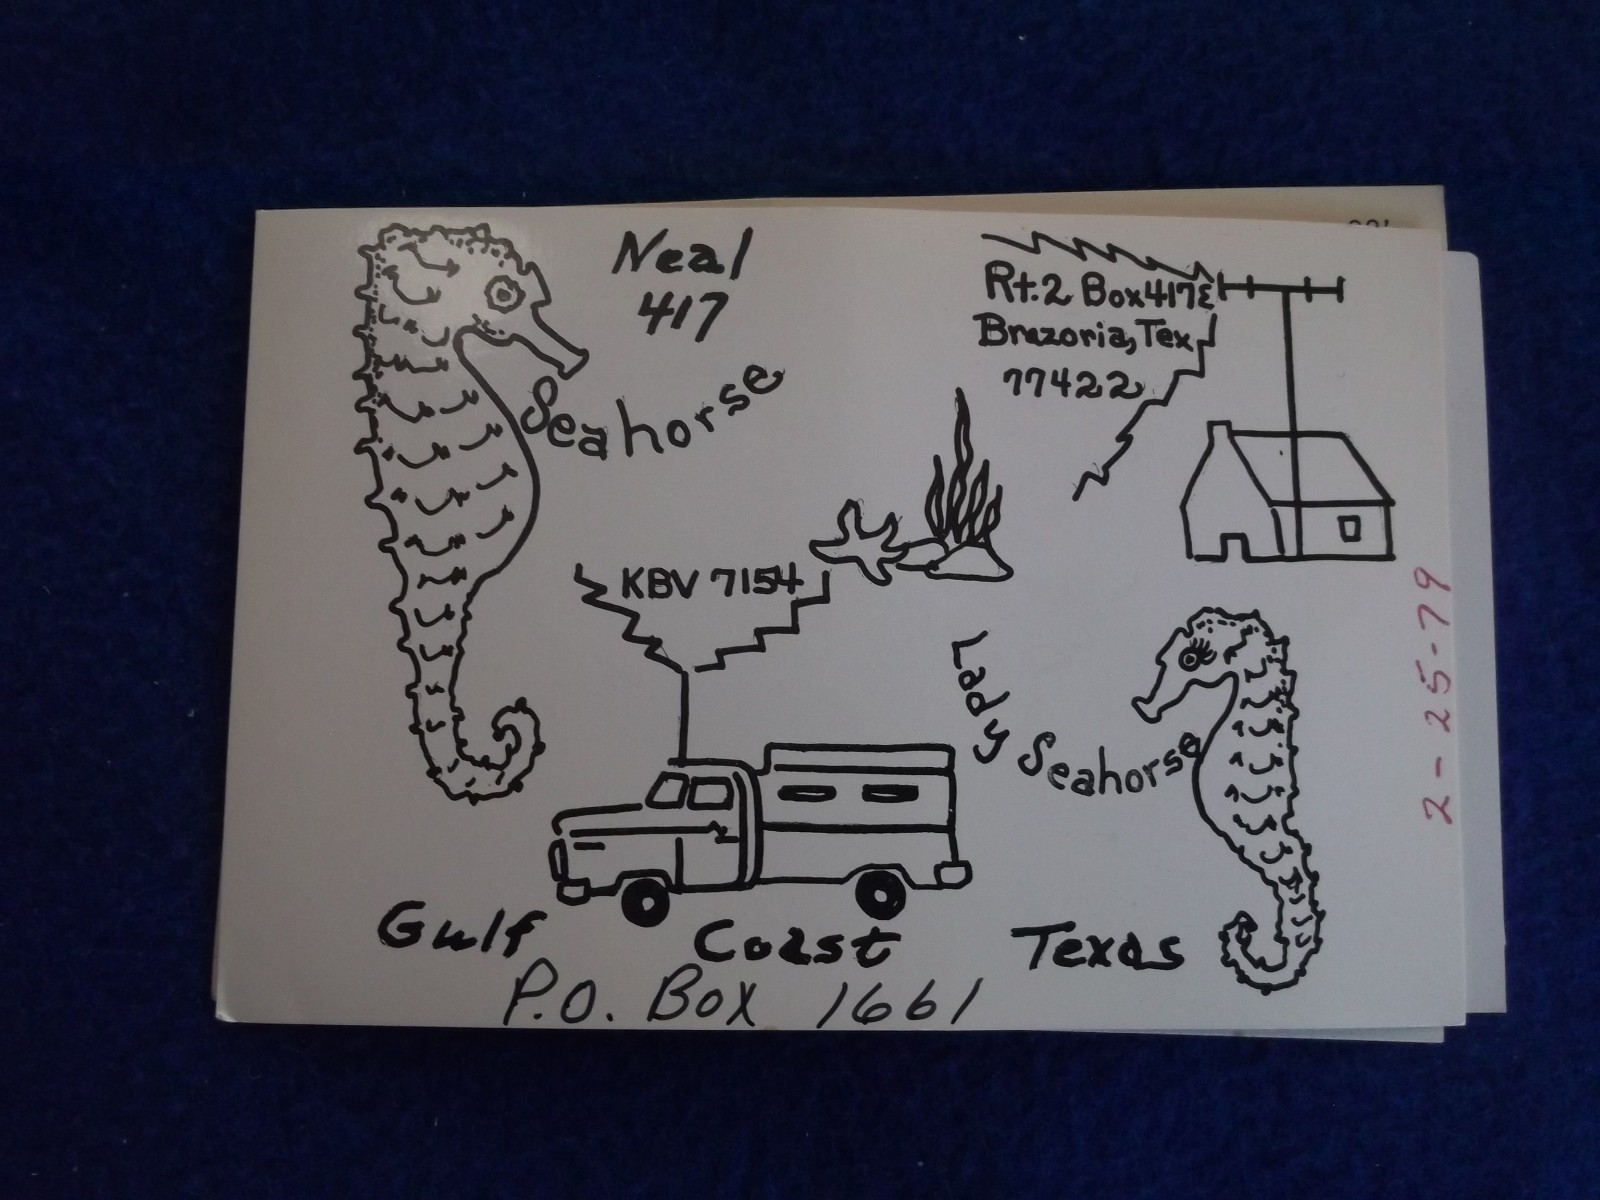 Neal
417
Seahorse
Rt.2 Box 417E
Brazoria, Tex
77422
KBV 7154
Lady Seahorse
Gulf Coast Texas
P.O. Box 1661
2-25-79